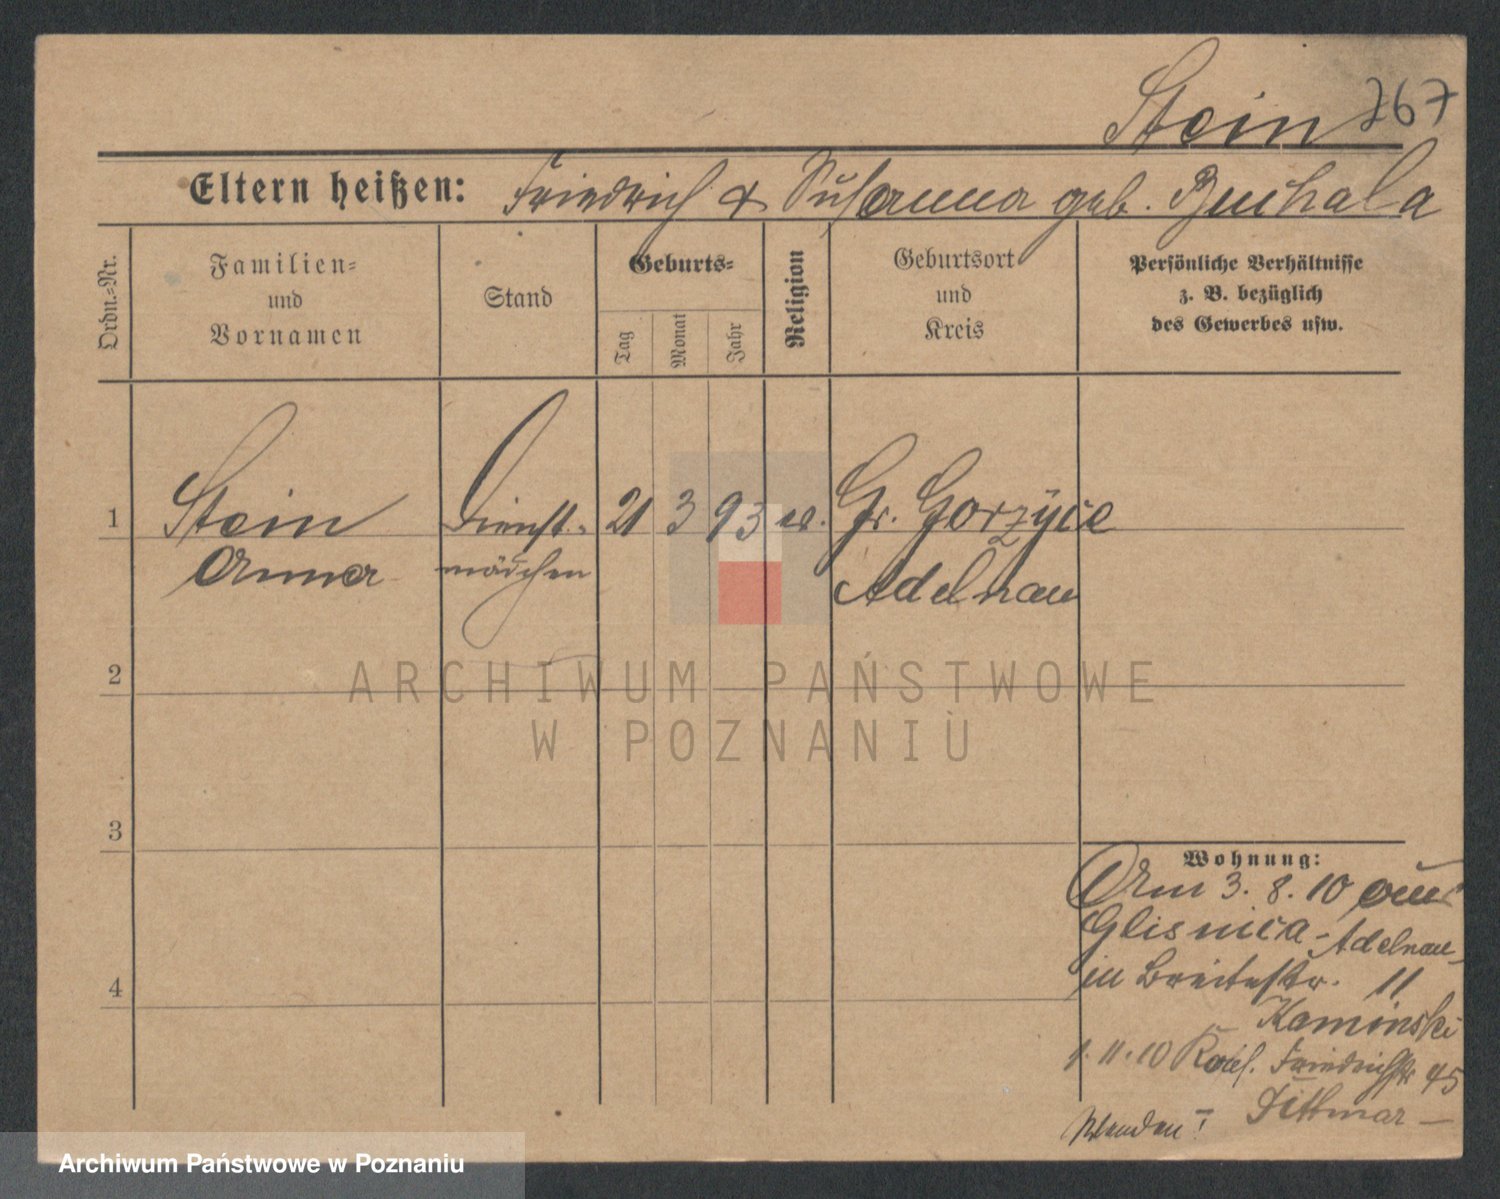 Stein 767
Eltern heißen: Friedrich & Susanna geb. Buchala
Ordn.-Nr.
Familien-
und
Vornamen
Stand
Geburts-
Tag
Monat
Jahr
Religion
Geburtsort
und
Kreis
Persönliche Verhältnisse
z. B. bezüglich
des Gewerbes usw.
1 Stein Dienst- 21 3 93 ev. Gr. Gorzyce
Anna mädchen Adelnau
2
ARCHIWUM PAŃSTWOWE
W POZNANIU
3
Wohnung:
Am 3. 8. 10 aus
Glisnica - Adelnau
in Breitestr. 11
Kaminski
4
1. 11. 10 Friedrichstr 45
Dittmar
Wenden!
Archiwum Państwowe w Poznaniu